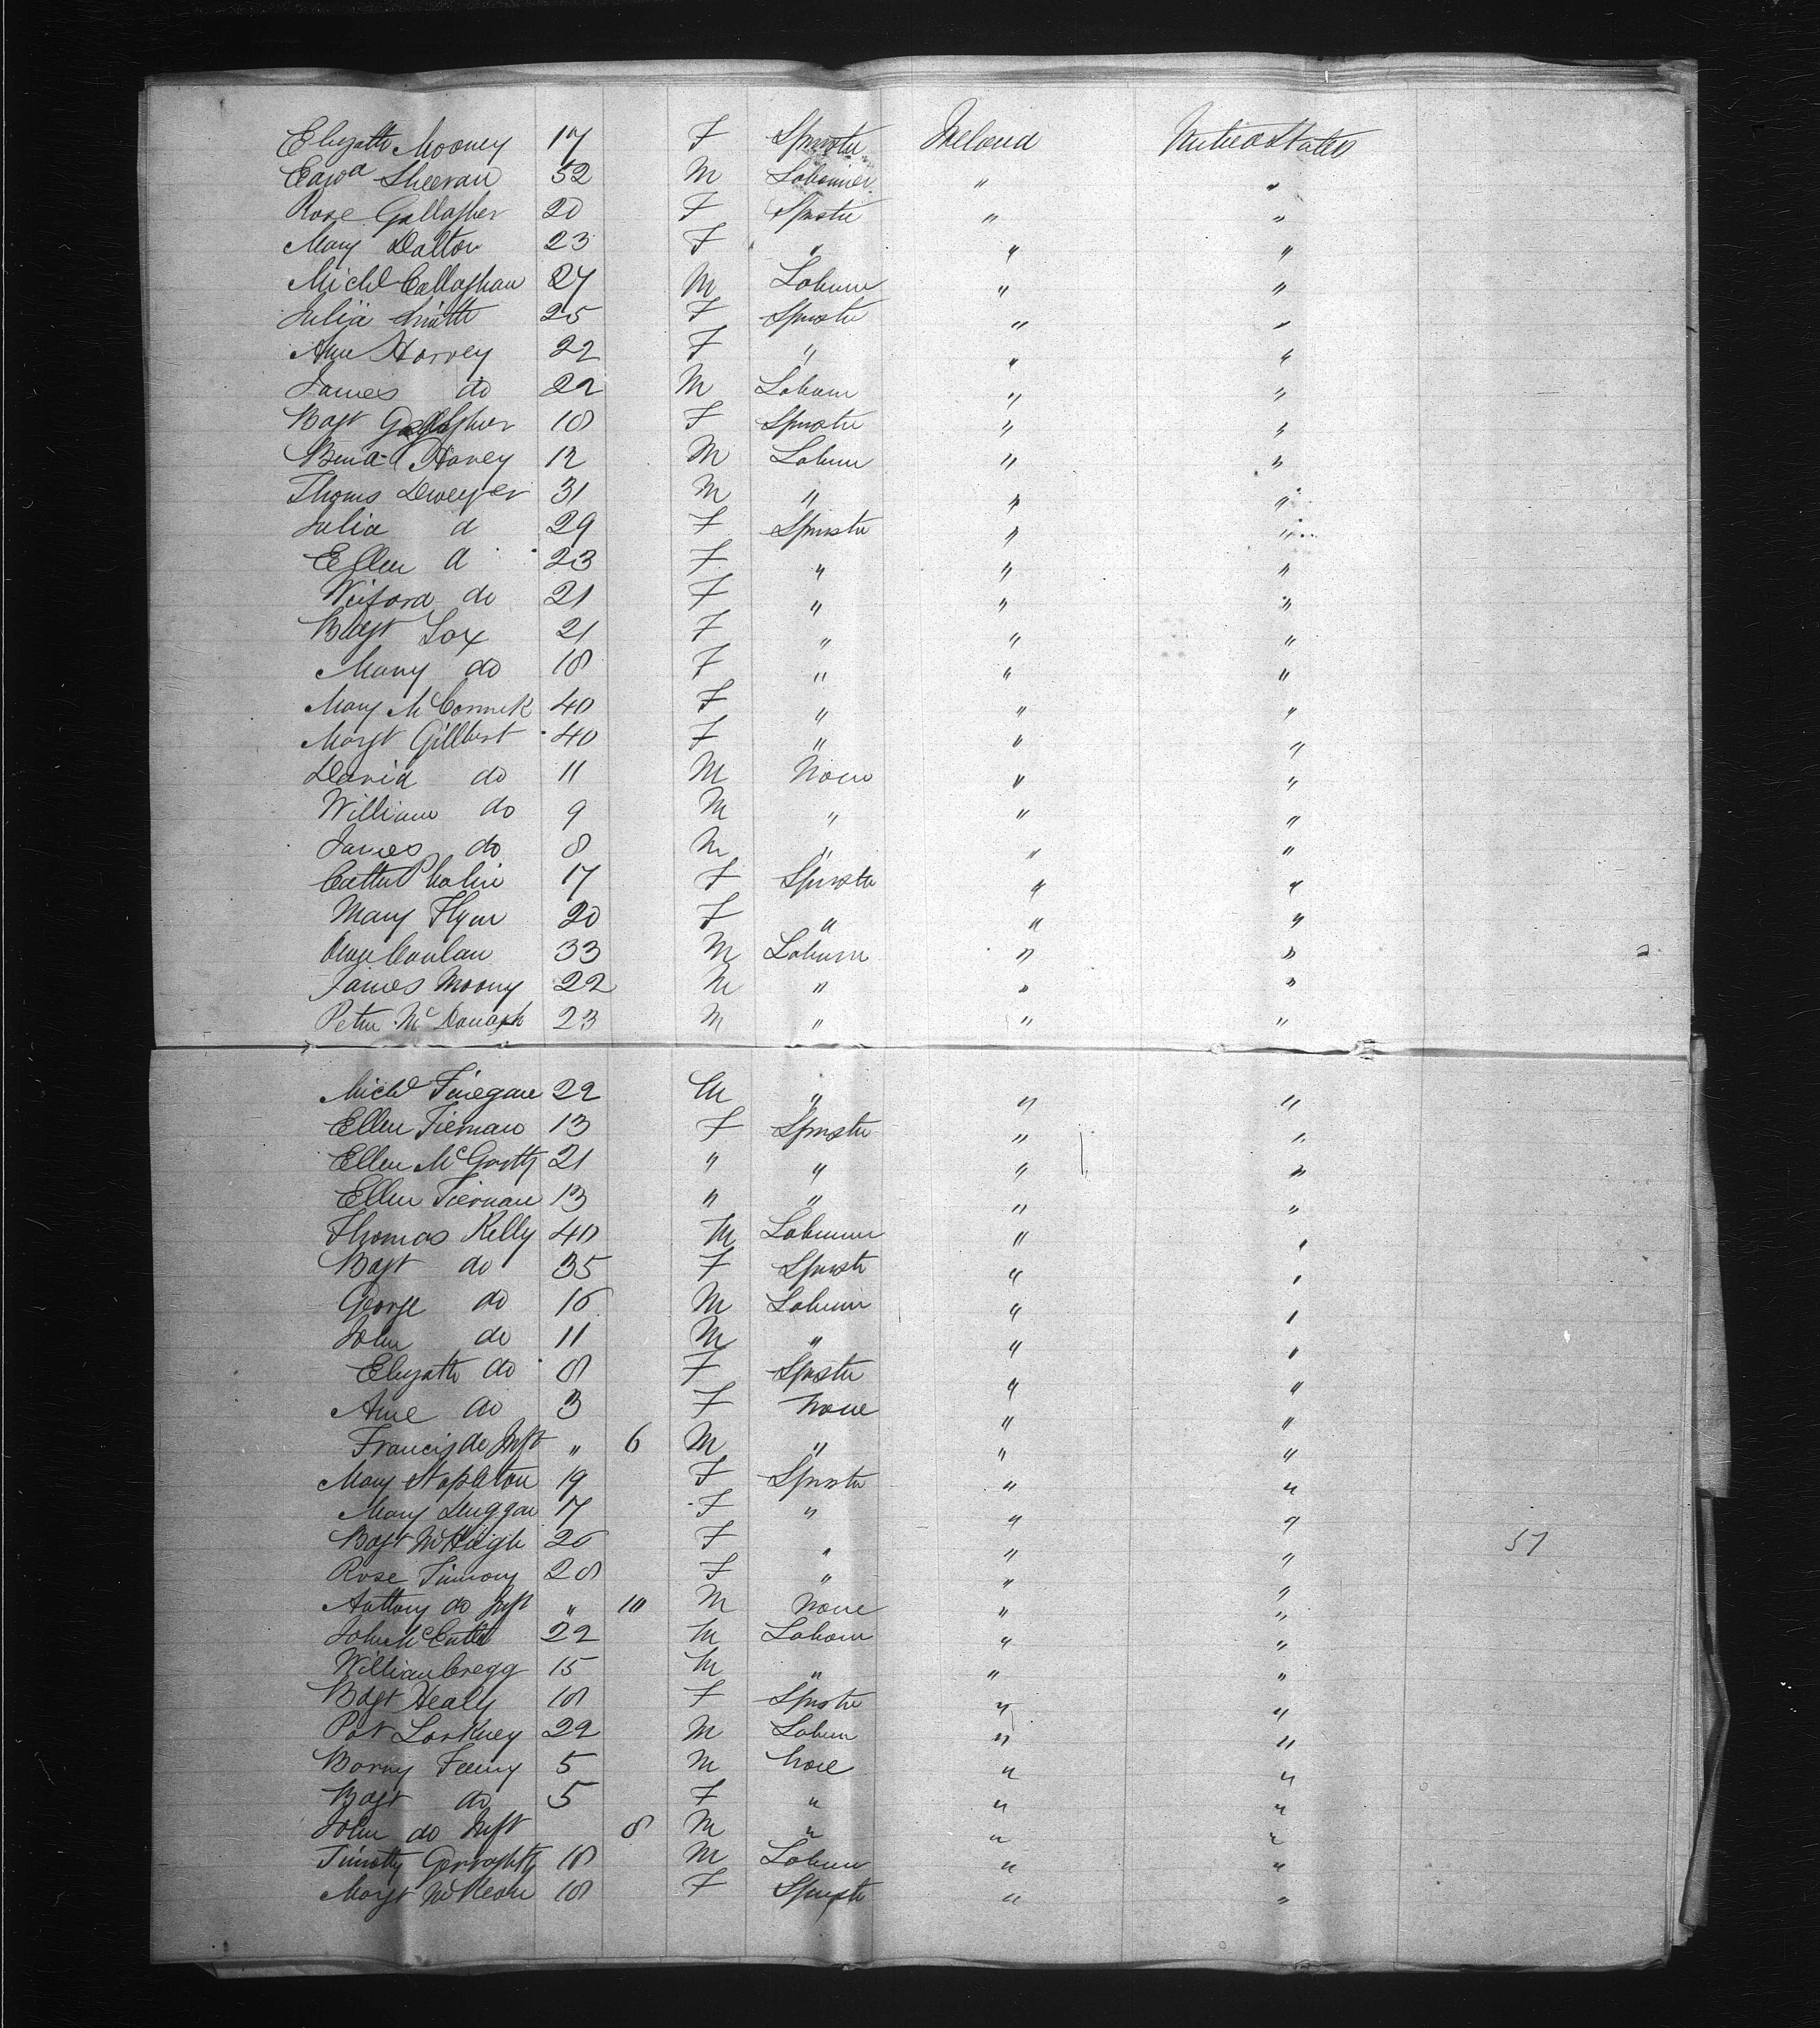 Elizath Mooney 17 F Spinster Ireland United States
Edwd Sheeran 32 M Labourer " "
Rose Gallagher 20 F Spinster " "
Mary Dalton 23 F " " "
Michl Callaghan 27 M Labourer " "
Julia Smith 25 F Spinster " "
Ann Harvey 22 F " " "
James do 22 M Labourer " "
Bdgt Gallagher 18 F Spinster " "
Bernd Harvey 12 M Labourer " "
Thoms Dweyer 31 M " " "
Julia d 29 F Spinster " "
Ellen d 23 F " " "
Winford do 21 F " " "
Bdgt Fox 21 F " " "
Mary do 18 F " " "
Mary McCormick 40 F " " "
Margt Gilbert 40 F " " "
David do 11 M None " "
William do 9 M " " "
James do 8 M " " "
Cathn Phalin 17 F Spinster " "
Mary Flynn 20 F " " "
Owen Conlan 33 M Labourer " "
James Moony 22 M " " "
Peter McDonagh 23 M " " "
Michl Finegan 22 M " " "
Ellen Tiernan 13 F Spinster " "
Ellen McGarty 21 " " " "
Ellen Tiernan 13 " " " "
Thomas Kelly 40 M Labourer " "
Bdgt do 35 F Spinster " "
George do 16 M Labourer " "
John do 11 M " " "
Elizath do 8 F Spinster " "
Anne do 3 F None " "
Francis do Inft " 6 M " " "
Mary Stapleton 19 F Spinster " "
Mary Duggan 17 F " " "
Bdgt McHugh 26 F " " " 57
Rose Timmony 28 F " " "
Anthony do Inft " 10 M None " "
John 22 M Labourer " "
William Gregg 15 M " " "
Bdgt Healy 18 F Spinster " "
Pat Larkney 22 M Labourer " "
Barny Feeny 5 M None " "
Bdgt do 5 F " " "
John do Inft 8 M " " "
Timothy Gerraghty 18 M Labourer " "
Margt McKeon 18 F Spinster " "